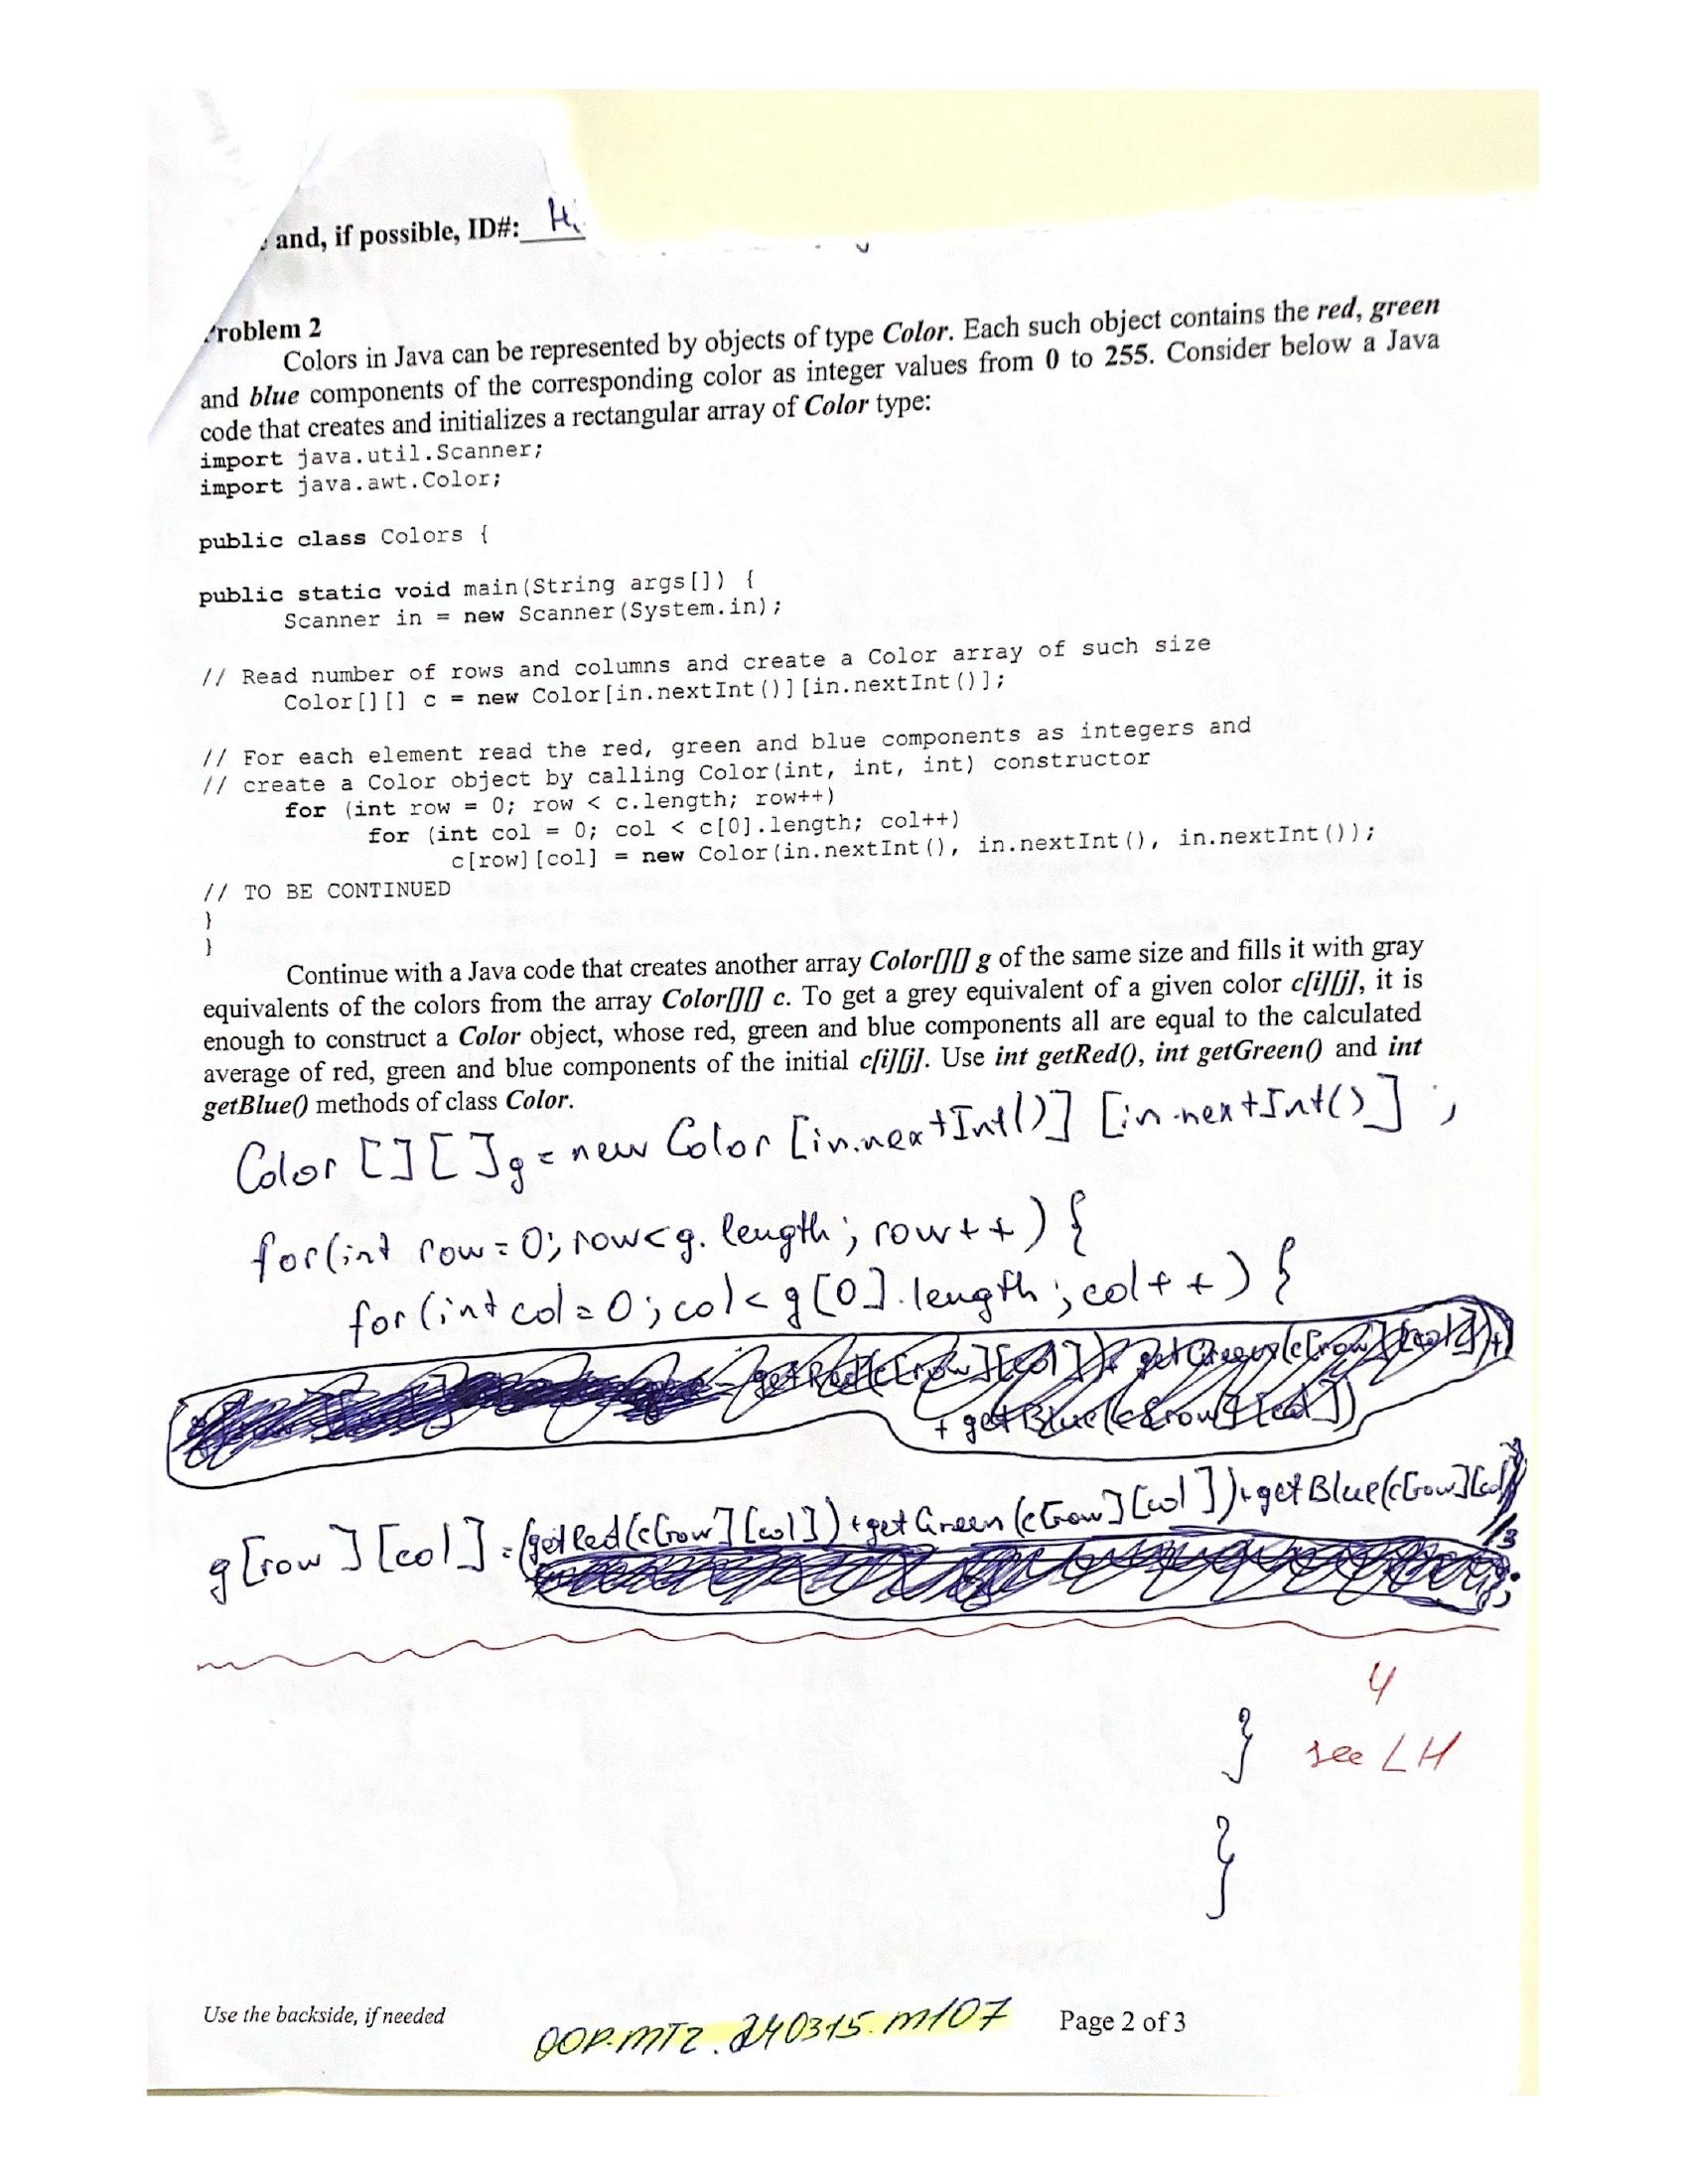 and, if possible, ID#: Hi
roblem 2
Colors in Java can be represented by objects of type Color. Each such object contains the red, green
and blue components of the corresponding color as integer values from 0 to 255. Consider below a Java
code that creates and initializes a rectangular array of Color type:
import java.util.Scanner;
import java.awt.Color;
public class Colors {
public static void main(String args[]) {
Scanner in = new Scanner(System.in);
// Read number of rows and columns and create a Color array of such size
Color[][] c = new Color[in.nextInt()][in.nextInt()];
// For each element read the red, green and blue components as integers and
// create a Color object by calling Color(int, int, int) constructor
for (int row = 0; row < c.length; row++)
for (int col = 0; col < c[0].length; col++)
c[row][col] = new Color(in.nextInt(), in.nextInt(), in.nextInt());
// TO BE CONTINUED
}
}
Continue with a Java code that creates another array Color[][] g of the same size and fills it with gray
equivalents of the colors from the array Color[][] c. To get a grey equivalent of a given color c[i][j], it is
enough to construct a Color object, whose red, green and blue components all are equal to the calculated
average of red, green and blue components of the initial c[i][j]. Use int getRed(), int getGreen() and int
getBlue() methods of class Color.
Color [][]g = new Color [in.nextInt()] [in.nextInt()] ;
for(int row = 0; row < g. length; row++) {
for(int col = 0; col < g[0].length; col++) {
getRed(c[row][col]) + getGreen(c[row][col]) +
+ getBlue(c[row][col])
g[row][col] = (getRed(c[row][col]) + getGreen(c[row][col]) + getBlue(c[row][col]))/3
;
4
} see LH
}
Use the backside, if needed
OOP.MT2.240315.M107
Page 2 of 3